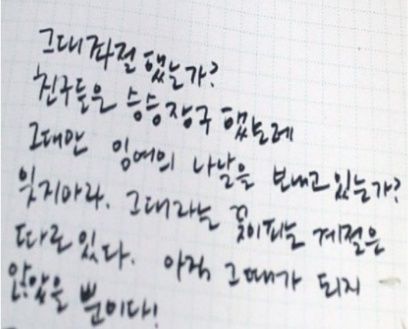 그대 좌절했는가?
친구들은 승승장구 했는데
그대만 잉여의 나날을 보내고 있는가?
잊지마라. 그대라는 꽃이피는 계절은
따로 있다. 아직 그때가 되지
않았을 뿐이다!